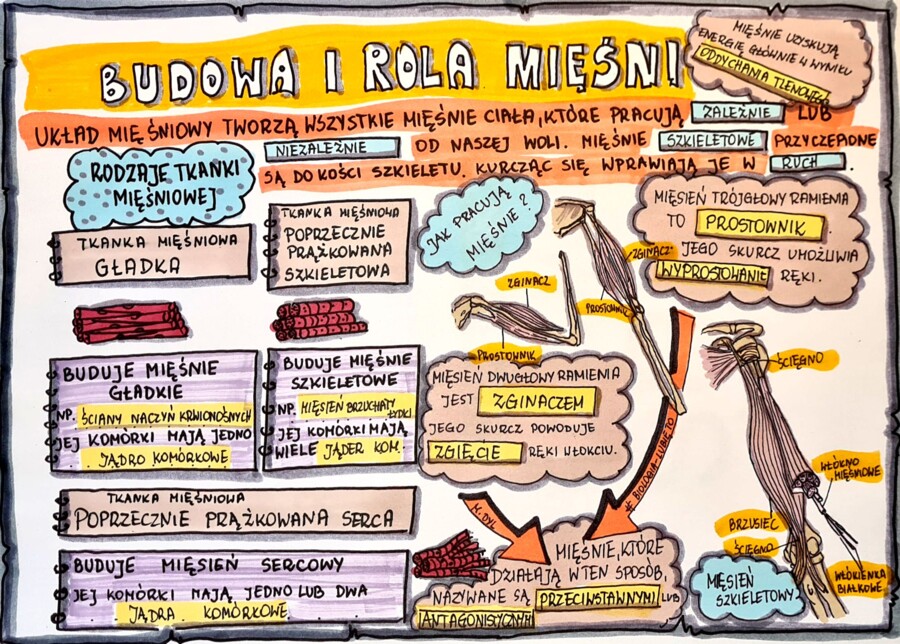 BUDOWA I ROLA MIĘŚNI
MIĘŚNIE UZYSKUJĄ
ENERGIĘ GŁÓWNIE W WYNIKU
ODDYCHANIA TLENOWEGO
UKŁAD MIĘŚNIOWY TWORZĄ WSZYSTKIE MIĘŚNIE CIAŁA, KTÓRE PRACUJĄ ZALEŻNIE LUB
NIEZALEŻNIE OD NASZEJ WOLI. MIĘŚNIE SZKIELETOWE PRZYCZEPIONE
SĄ DO KOŚCI SZKIELETU. KURCZĄC SIĘ WPRAWIAJĄ JE W RUCH.
RODZAJE TKANKI
MIĘŚNIOWEJ
TKANKA MIĘŚNIOWA
GŁADKA
TKANKA MIĘŚNIOWA
POPRZECZNIE
PRĄŻKOWANA
SZKIELETOWA
BUDUJE MIĘŚNIE
GŁADKIE
NP. ŚCIANY NACZYŃ KRWIONOŚNYCH
JEJ KOMÓRKI MAJĄ JEDNO
JĄDRO KOMÓRKOWE
BUDUJE MIĘŚNIE
SZKIELETOWE
NP. MIĘSIEŃ BRZUCHATY ŁYDKI
JEJ KOMÓRKI MAJĄ
WIELE JĄDER KOM.
TKANKA MIĘŚNIOWA
POPRZECZNIE PRĄŻKOWANA SERCA
BUDUJE MIĘSIEŃ SERCOWY
JEJ KOMÓRKI MAJĄ JEDNO LUB DWA
JĄDRA KOMÓRKOWE
JAK PRACUJĄ
MIĘŚNIE?
ZGINACZ
PROSTOWNIK
ZGINACZ
PROSTOWNIK
MIĘSIEŃ TRÓJGŁOWY RAMIENIA
TO PROSTOWNIK.
JEGO SKURCZ UMOŻLIWIA
WYPROSTOWANIE RĘKI.
MIĘSIEŃ DWUGŁOWY RAMIENIA
JEST ZGINACZEM
JEGO SKURCZ POWODUJE
ZGIĘCIE RĘKI W ŁOKCIU.
M. DYL
# BIOLOGIA-LUBIĘ TO
MIĘŚNIE, KTÓRE
DZIAŁAJĄ W TEN SPOSÓB,
NAZYWANE SĄ PRZECIWSTAWNYMI LUB
ANTAGONISTYCZNYMI
ŚCIĘGNO
WŁÓKNO
MIĘŚNIOWE
BRZUSIEC
ŚCIĘGNO
WŁÓKIENKA
BIAŁKOWE
MIĘSIEŃ
SZKIELETOWY